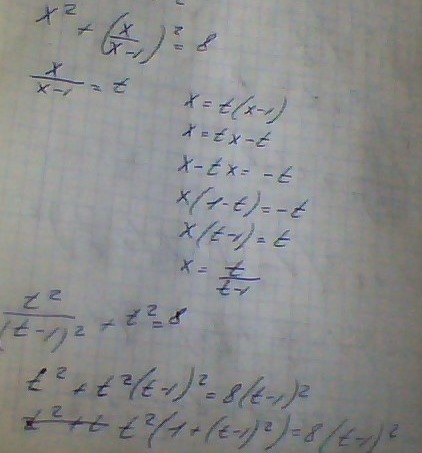 x² + (x/(x-1))² = 8
x/(x-1) = t
x = t(x-1)
x = tx - t
x - tx = -t
x(1-t) = -t
x(t-1) = t
x = t/(t-1)
t²/(t-1)² + t² = 8
t² + t²(t-1)² = 8(t-1)²
t² + t t²(1+(t-1)²) = 8(t-1)²